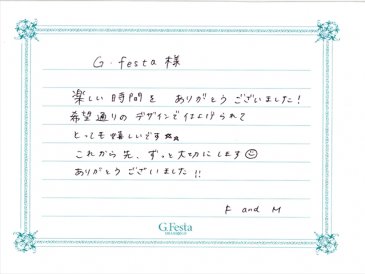 G.festa 様
楽しい時間を ありがとうございました!
希望通りのデザインで仕上げられて
とっても嬉しいです☆☆
これから先、ずっと大切にします☺
ありがとうございました!!
F and M
G.Festa